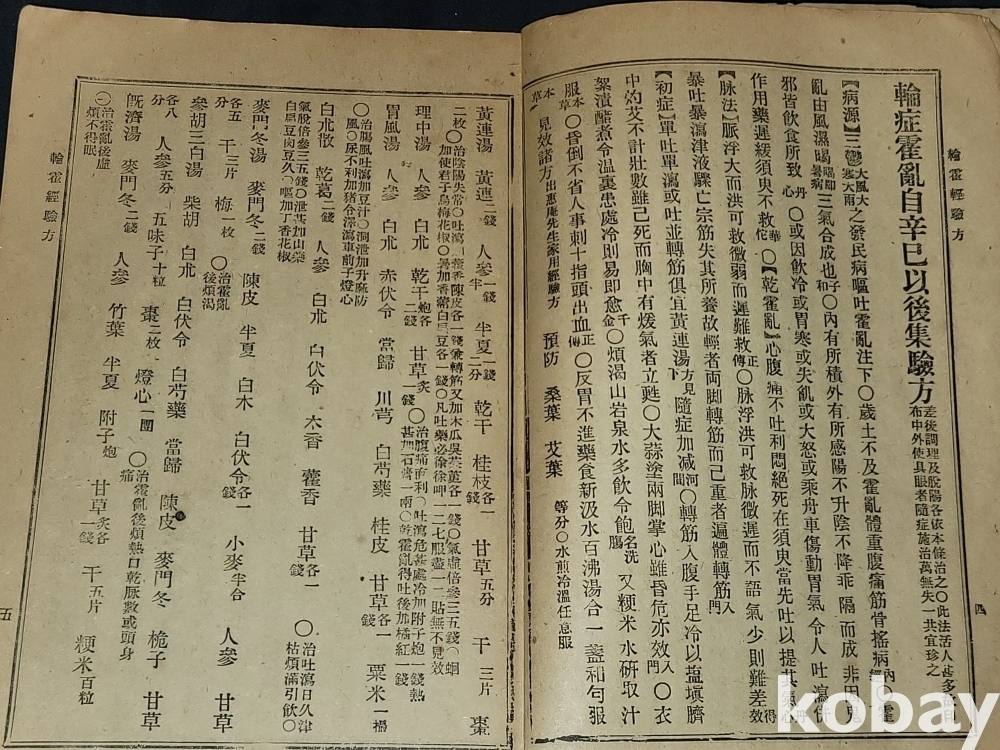 輪霍經驗方
四
輪症霍亂自辛巳以後集驗方 差後調理及脫陽各依本條治之〇此法活人甚多
布中外使具眼者隨症施治萬無失一共宜珍之
【病源】三鬱 大風大寒大雨 之發民病嘔吐霍亂注下〇歲土不及霍亂體重腹痛筋骨搖病 〇霍
亂由風濕暍 暍卽暑病 三氣合成也 子和 〇內有所積外有所感陽不升陰不降乖隔而成非因鬼
邪皆飮食所致 丹心 〇或因飮冷或胃寒或失飢或大怒或乘舟車傷動胃氣令人吐瀉併
作用藥遲緩須臾不救 華佗 〇【乾霍亂】心腹痛不吐利悶絕死在須臾當先吐以提其氣
【脉法】脈浮大而洪可救微弱而遲難救 正傳 〇脉浮洪可救脉微遲而不語氣少則難差 得效
暴吐暴瀉津液驟亡宗筋失其所養故輕者兩脚轉筋而已重者遍體轉筋 入門
【初症】單吐單瀉或吐並轉筋俱宜黃連湯 方見下 隨症加减 河間 〇轉筋入腹手足冷以塩塡臍
中灼艾不計壯數雖已死而胸中有煖氣者立甦〇大蒜塗兩脚掌心雖昏危亦效 入門 〇衣
絮漬醋煮令溫裹患處冷則易卽愈 千金 〇煩渴山岩泉水多飮令飽名洗膓 又粳米水硏取汁
服 本草 〇昏倒不省人事刺十指頭出血 正傳 〇反胃不進藥食新汲水百沸湯合一盞和勻服
本草 見效諸方 出惠庵先生家用經驗方 預防 桑葉 艾葉 等分〇水煎冷溫任意服
黃連湯 黃連二錢 人參一錢半 半夏一錢二分 乾干 桂枝各一錢 甘草五分 干三片 棗
二枚〇治陰陽失常〇吐瀉
理中湯 人參 白朮 乾干炮各二錢 甘草炙一錢 〇治腹痛而利〇吐瀉危甚處冷加附子炮一錢熱
甚加石膏一兩〇乾霍亂得吐後加橘紅一錢
胃風湯 人參 白朮 赤伏令 當歸 川芎 白芍藥 桂皮 甘草各一錢 粟米一撮
〇治腸風吐瀉加豆汁〇洞泄加升麻防
風〇尿不利加猪令澤瀉車前子燈心
白朮散 乾葛二錢 人參 白朮 白伏令 木香 藿香 甘草各一錢 〇治吐瀉日久津枯煩滿引飮〇
氣脫倍參三五錢〇泄甚加山藥
白扁豆肉豆久〇嘔加丁香花椒
麥門冬湯 麥門冬二錢 陳皮 半夏 白木 白伏令各一錢 小麥半合 人參 甘草
各五分 干三片 梅一枚 〇治霍亂後煩渴
參胡三白湯 柴胡 白朮 白伏令 白芍藥 當歸 陳皮 麥門冬 梔子 甘草
各八分 人參五分 五味子十粒 棗二枚 燈心一團 〇治霍亂後煩熱口乾脈數或頭身痛
旣濟湯 麥門冬二錢 人參 竹葉 半夏 附子炮 甘草炙各一錢 干五片 粳米百粒
〇治霍亂後虛
煩不得眠
輪霍經驗方
五
kobay